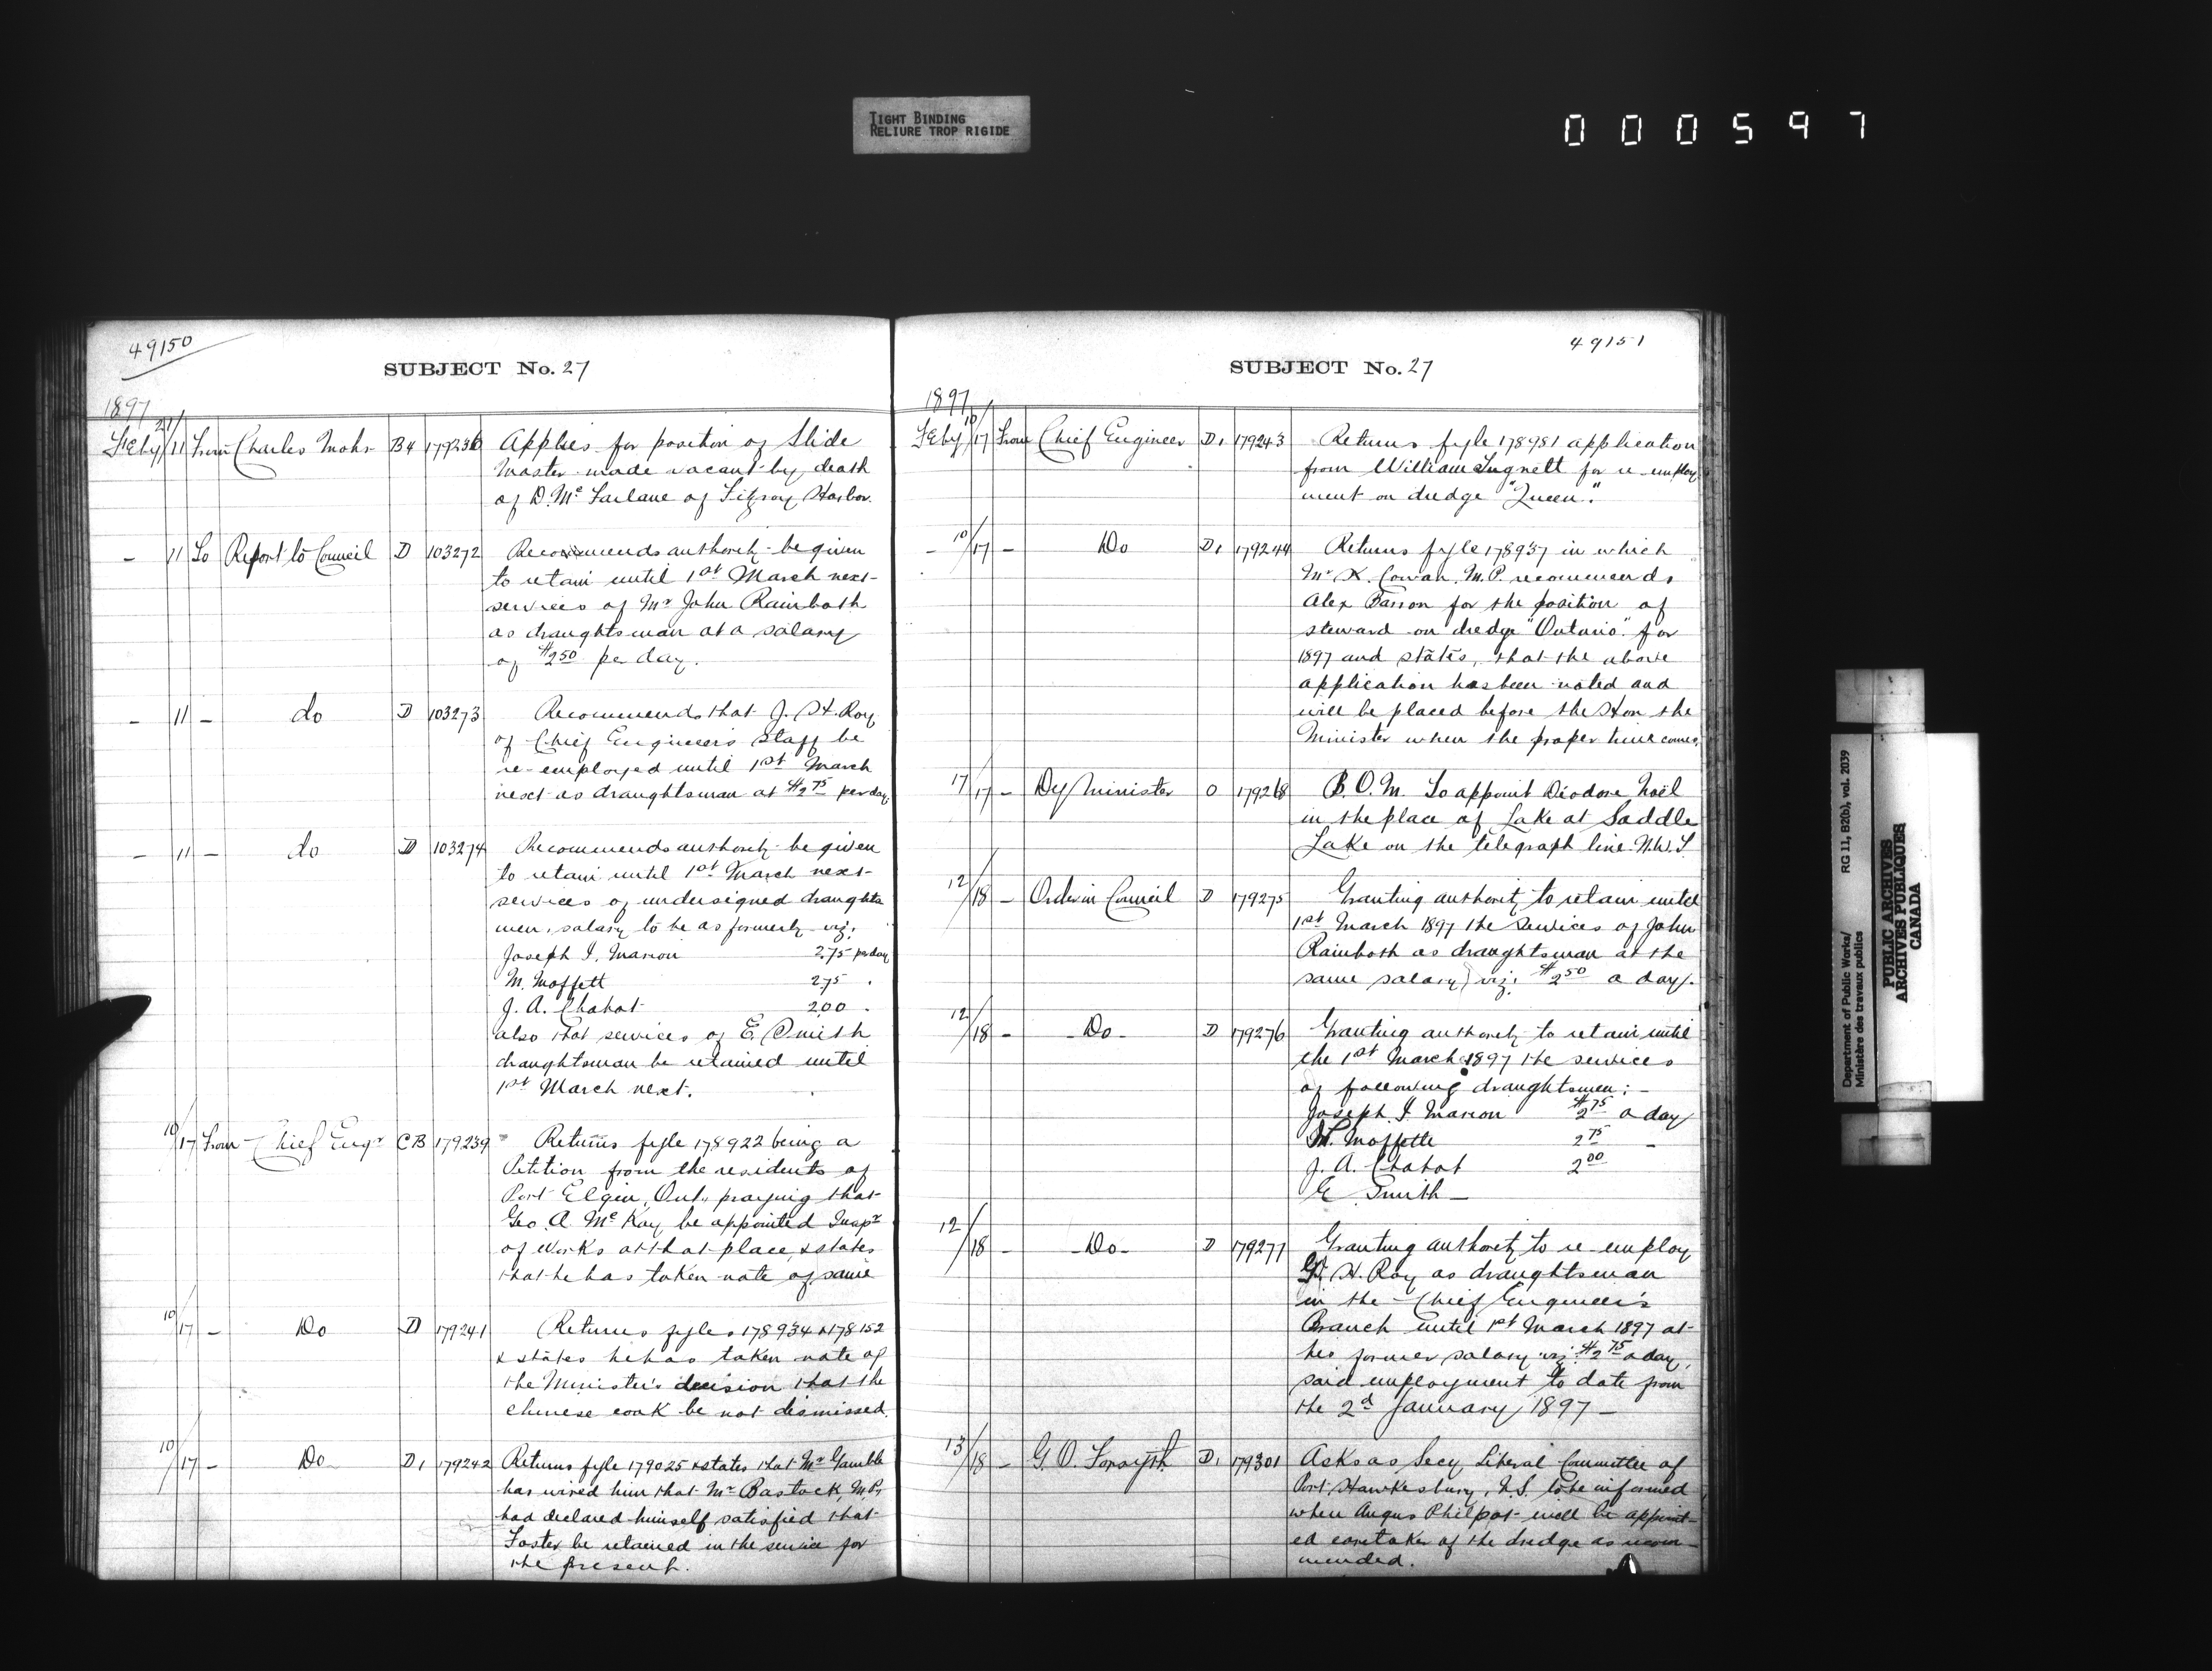 TIGHT BINDING
RELIURE TROP RIGIDE
000597
49150
SUBJECT No. 27
1897
Feby 11 From Charles Mohr B4 179236 Applies for position of Slide
Master made vacant by death
of D. Mc Farlane of Fitzroy Harbor.
- 11 To Report to Council D 103272 Recommends authority be given
to retain until 1st March next
services of Mr John Rainboth
as draughtsman at a salary
of $2.50 per day.
- 11 - do D 103273 Recommends that J. H. Roy
of Chief Engineer's Staff be
re-employed until 1st March
next as draughtsman at $2.75 per day.
- 11 - do D 103274 Recommends authority be given
to retain until 1st March next
services of undersigned draughts
men, salary to be as formerly viz:
Joseph I. Marion 2.75 per day
M. Moffett 2.75 "
J. A. Chabot 2.00 "
also that services of E. Smith
draughtsman be retained until
1st March next.
10/17 From Chief Engr CB 179239 Returns fyle 178922 being a
Petition from the residents of
Port Elgin, Ont., praying that
Geo. A. McKay be appointed Inspr
of Works at that place, & states
that he has taken note of same
10/17 - Do D 179241 Returns fyles 178934 & 178152
& states he has taken note of
the Minister's decision that the
chinese cook be not dismissed.
10/17 - Do D1 179242 Returns fyle 179025 & states that Mr Gamble
has wired him that Mr Bostock, M.P.,
had declared himself satisfied that
Foster be retained in the service for
the present.
49151
SUBJECT No. 27
1897
Feby 10/17 From Chief Engineer D1 179243 Returns fyle 178981 application
from William for re-employ
ment on dredge "Queen".
- 10/17 - Do D1 179244 Returns fyle 178937 in which
Mr Cowan, M.P. recommends
Alex for the position of
steward on dredge "Ontario" for
1897 and states, that the above
application has been noted and
will be placed before the Hon the
Minister when the proper time comes.
17/17 - Dy Minister O 179268 B.O.M. To appoint Diodore Noël
in the place of Lake at Saddle
Lake on the telegraph line N.W.T.
12/18 - Order in Council D 179275 Granting authority to retain until
1st March 1897 the services of John
Rainboth as draughtsman at the
same salary viz: $2.50 a day.
12/18 - Do - D 179276 Granting authority to retain until
the 1st March 1897 the services
of following draughtsmen: -
Joseph I Marion $2.75 a day
M. Moffette 2.75 -
J. A. Chabot 2.00
E Smith -
12/18 - Do - D 179277 Granting authority to re-employ
H. Roy as draughtsman
in the Chief Engineer's
Branch until 1st March 1897 at
his former salary viz: $2.75 a day,
said employment to date from
the 2d January 1897 -
13/18 - G. O. Forsyth D1 179301 Asks as Secy Liberal Committee of
Port Hawkesbury, N.S. to be informed
when Angus Philpot will be appoint-
ed caretaker of the dredge as recom-
mended.
Department of Public Works/ RG 11, B2(b), vol. 2039
Ministère des travaux publics
PUBLIC ARCHIVES
ARCHIVES PUBLIQUES
CANADA